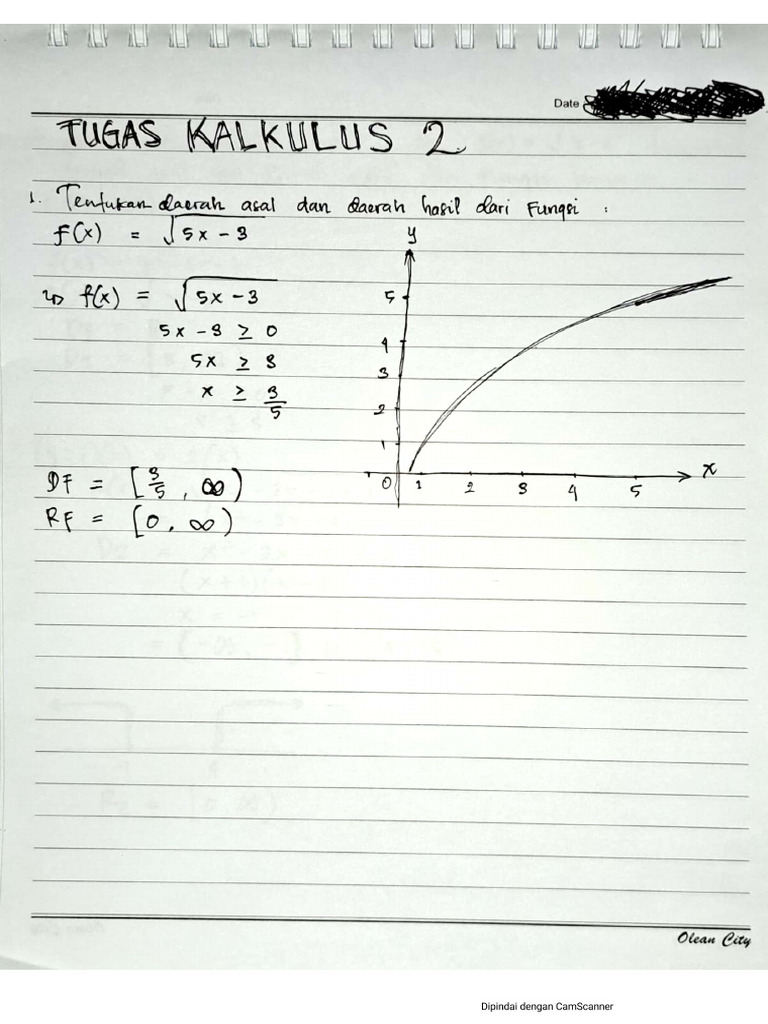 Date
TUGAS KALKULUS 2.
1. Tentukan daerah asal dan daerah hasil dari Fungsi :
f(x) = √5x - 3
y
f(x) = √5x - 3
5x - 3 ≥ 0
5x ≥ 3
x ≥ 3/5
5
4
3
2
1
0 1 2 3 4 5 x
DF = [3/5, ∞)
RF = [0, ∞)
Olean City
Dipindai dengan CamScanner